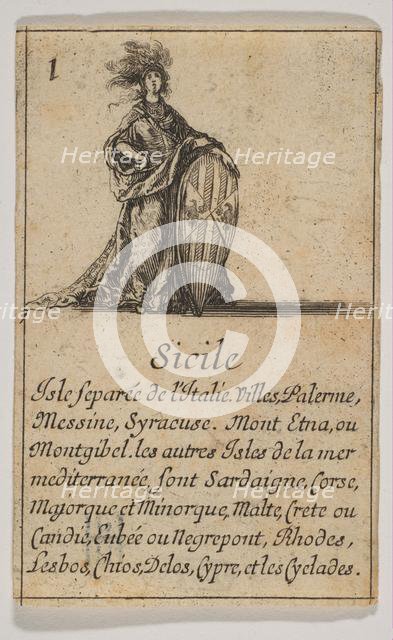 1
Heritage Heritage
C
Heritage Heritage
Sicile
Isle separée de l'Italie. Villes, Palerme,
Messine, Syracuse. Mont Etna, ou
Montgibel. les autres Isles de la mer
mediterranée, sont Sardaigne, Corse,
Majorque et Minorque, Malte, Crete ou
Candie, Eubée ou Negrepont, Rhodes,
Lesbos, Chios, Delos, Cypre, et les Cyclades.
Heritage Heritage